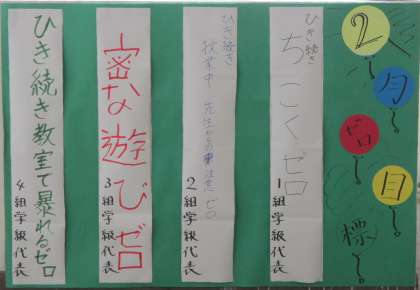 2月ゼロ目標
ひき続き
ちこくゼロ
1組学級代表
ひき続き
授業中 先生からの注意ゼロ
2組学級代表
密な遊びゼロ
3組学級代表
ひき続き教室で暴れるゼロ
4組学級代表